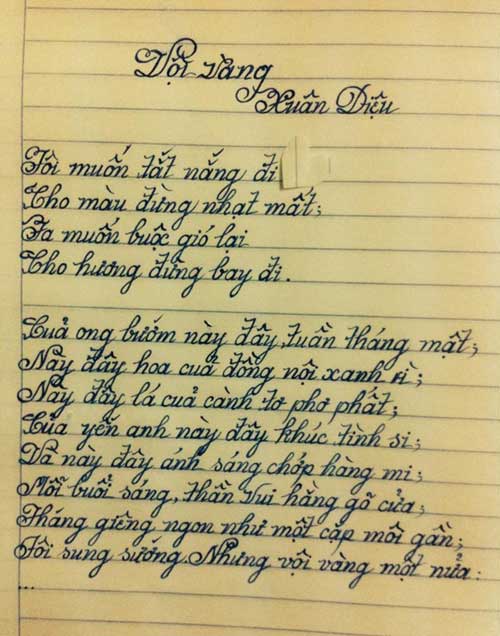 Vội vàng
Xuân Diệu
Tôi muốn tắt nắng đi
Cho màu đừng nhạt mất;
Ta muốn buộc gió lại
Cho hương đừng bay đi.
Cuả ong bướm này đây, tuần tháng mật;
Này đây hoa cuả đồng nội xanh rì;
Này đây lá cuả cành tơ phơ phất;
Của yến anh này đây khúc tình si;
Và này đây ánh sáng chớp hàng mi;
Mỗi buổi sáng, thần vui hằng gõ cửa;
Tháng giêng ngon như một cặp môi gần;
Tôi sung sướng. Nhưng vội vàng một nửa:
...